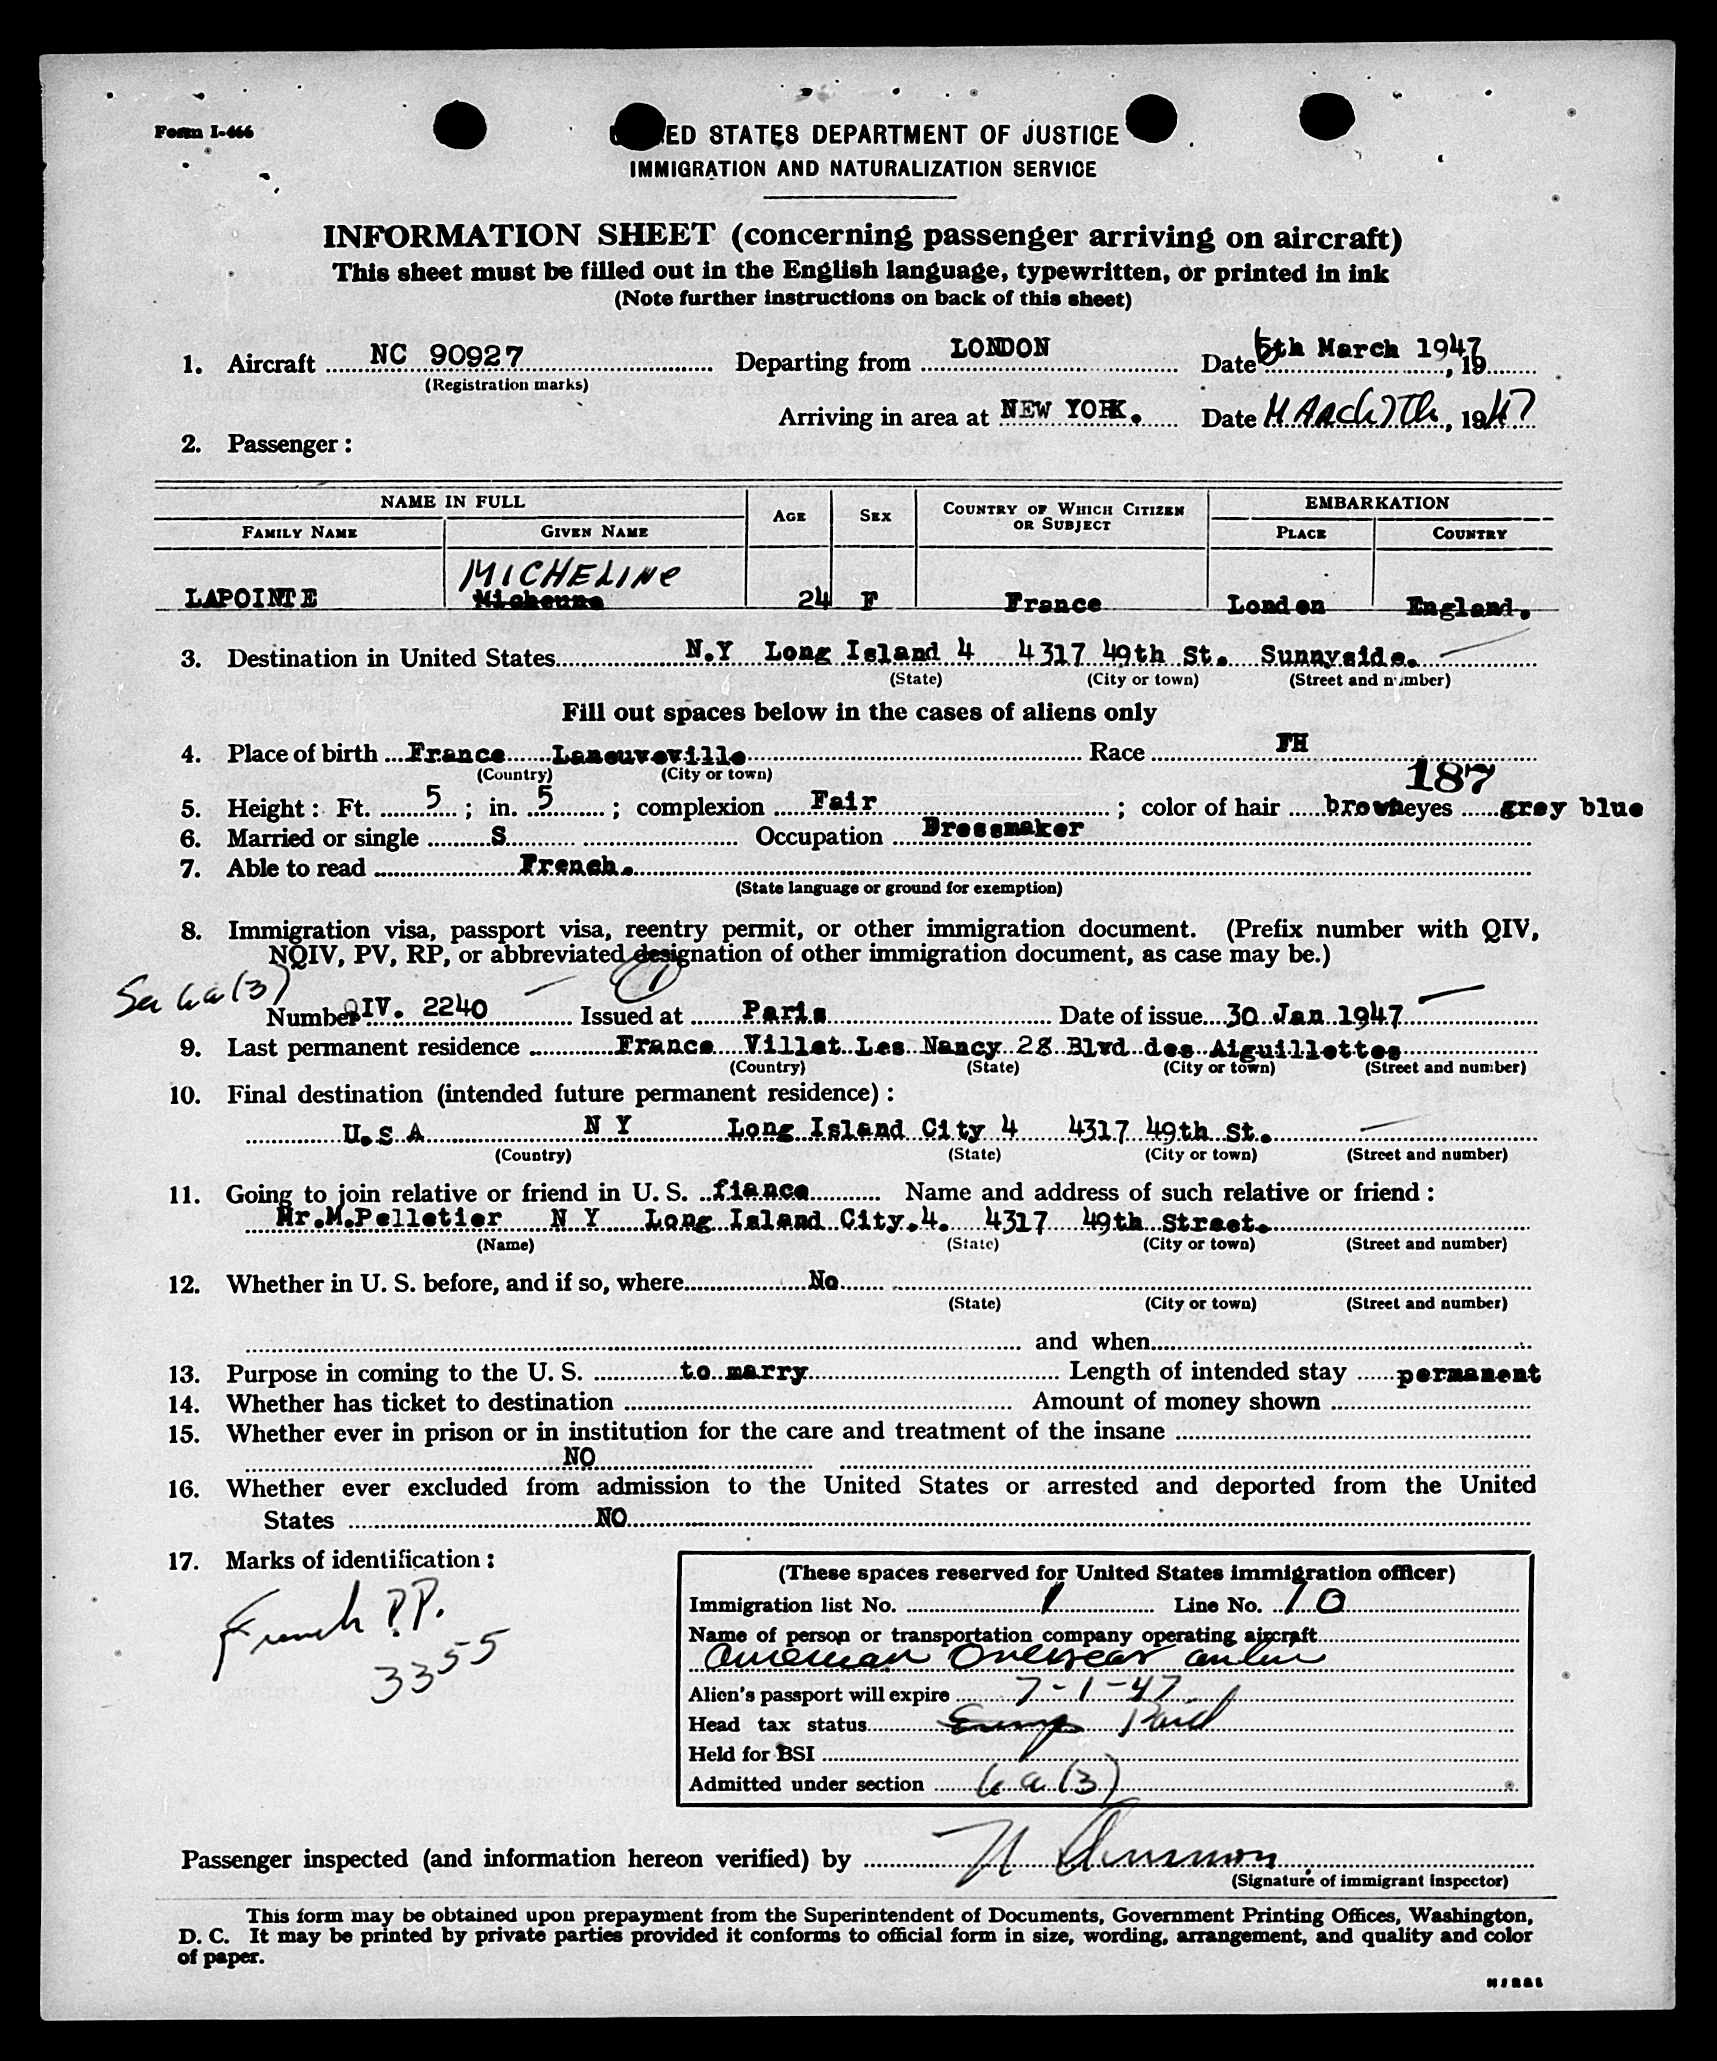 Form I-466
UNITED STATES DEPARTMENT OF JUSTICE
IMMIGRATION AND NATURALIZATION SERVICE
INFORMATION SHEET (concerning passenger arriving on aircraft)
This sheet must be filled out in the English language, typewritten, or printed in ink
(Note further instructions on back of this sheet)
1. Aircraft NC 90927 Departing from LONDON Date 6th March 1947, 19
(Registration marks)
Arriving in area at NEW YORK. Date MARCH 7TH, 1947
2. Passenger:
NAME IN FULL AGE SEX COUNTRY OF WHICH CITIZEN OR SUBJECT EMBARKATION
FAMILY NAME GIVEN NAME PLACE COUNTRY
MICHELINE
LAPOINTE Micheune 24 F France London England.
3. Destination in United States N.Y Long Island 4 4317 49th St. Sunnyside.
(State) (City or town) (Street and number)
Fill out spaces below in the cases of aliens only
4. Place of birth France Laneuveville Race FH
(Country) (City or town)
187
5. Height: Ft. 5; in. 5; complexion Fair; color of hair brown eyes grey blue
6. Married or single S Occupation Dressmaker
7. Able to read French.
(State language or ground for exemption)
8. Immigration visa, passport visa, reentry permit, or other immigration document. (Prefix number with QIV,
NQIV, PV, RP, or abbreviated designation of other immigration document, as case may be.)
6a(3) 1
Number QIV. 2240 Issued at Paris Date of issue 30 Jan 1947
9. Last permanent residence France Villet Les Nancy 28 Blvd des Aiguillettes
(Country) (State) (City or town) (Street and number)
10. Final destination (intended future permanent residence):
U.S A N Y Long Island City 4 4317 49th St.
(Country) (State) (City or town) (Street and number)
11. Going to join relative or friend in U. S. fiance Name and address of such relative or friend:
Mr.M.Pelletier N Y Long Island City.4. 4317 49th Street.
(Name) (State) (City or town) (Street and number)
12. Whether in U. S. before, and if so, where No
(State) (City or town) (Street and number)
and when
13. Purpose in coming to the U. S. to marry Length of intended stay permanent
14. Whether has ticket to destination Amount of money shown
15. Whether ever in prison or in institution for the care and treatment of the insane
NO
16. Whether ever excluded from admission to the United States or arrested and deported from the United
States NO
17. Marks of identification:
French P.P.
3355
(These spaces reserved for United States immigration officer)
Immigration list No. 1 Line No. 10
Name of person or transportation company operating aircraft
American Overseas Airline
Alien's passport will expire 7-1-47
Head tax status Paid
Held for BSI
Admitted under section 6a(3)
Passenger inspected (and information hereon verified) by
(Signature of immigrant inspector)
This form may be obtained upon prepayment from the Superintendent of Documents, Government Printing Offices, Washington,
D. C. It may be printed by private parties provided it conforms to official form in size, wording, arrangement, and quality and color
of paper.